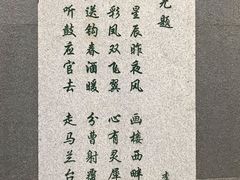 无题
李
星辰昨夜风 画楼西畔
彩凤双飞翼 心有灵犀
送钩春酒暖 分曹射覆
听鼓应官去 走马兰台